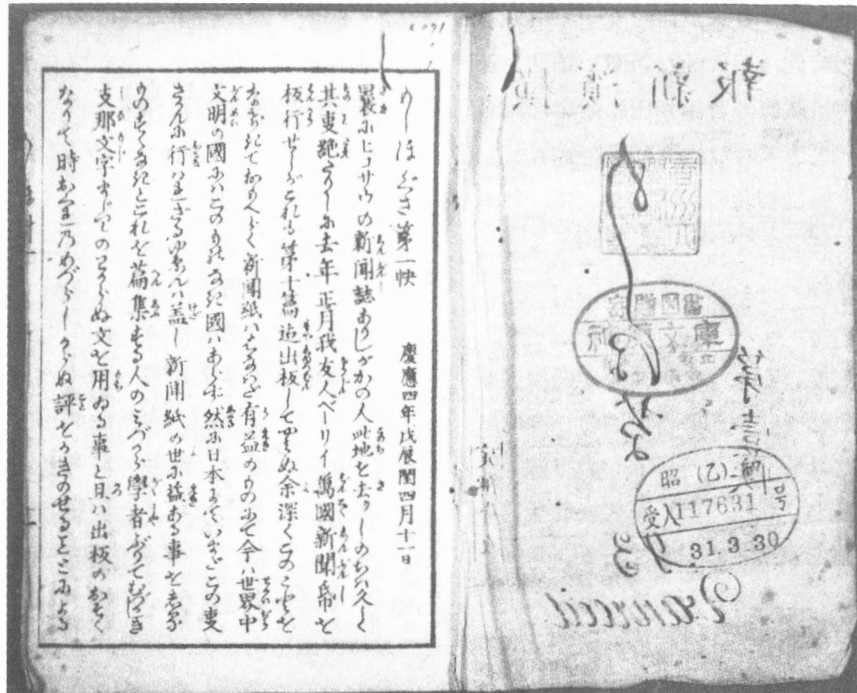 もしほぐさ第一帙 慶應四年戊辰閏四月十一日
曩にヒコザウの新聞誌ありしがかの人此地を去りしのちハ久しく
其事絶たりしに去年正月我友人ベーリイ萬國新聞帋を
板行せしがこれも第十篇迄出板してやみぬ余深くこのことを
なげきておもへらく新聞紙ハはなはだ有益のものにて今ハ世界中
文明の國にハこのものなき國ハあらず然に日本にていまだこの事
さかんに行ハれざるゆゑんハ盖し新聞紙の世に益ある事をしる
ものすくなきとこれを篇集する人のみづから學者ぶりてむづかしき
支那文字まじりのわからぬ文を用ゐる事と且ハ出板のおそく
なりて時おくれ乃めづらしからぬ評をかきのせることとによる
横濱新報
昭(乙)
受入117631号
31.3.30